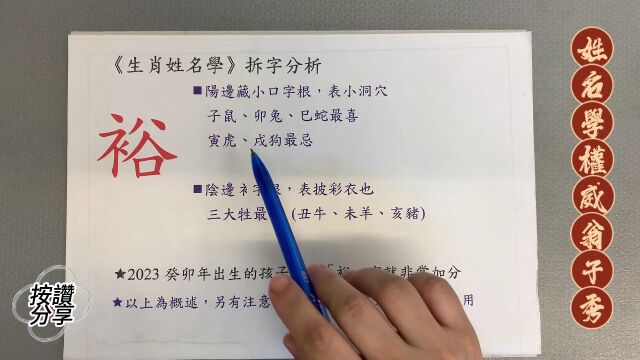 《生肖姓名學》拆字分析
裕
■陽邊藏小口字根，表小洞穴
子鼠、卯兔、巳蛇最喜
寅虎、戌狗最忌
■陰邊衤字根，表披彩衣也
三大牲最 (丑牛、未羊、亥豬)
★2023 癸卯年出生的孩子 「裕 就非常加分
★以上為概述，另有注意 用
按讚
分享
姓名學權威翁子秀